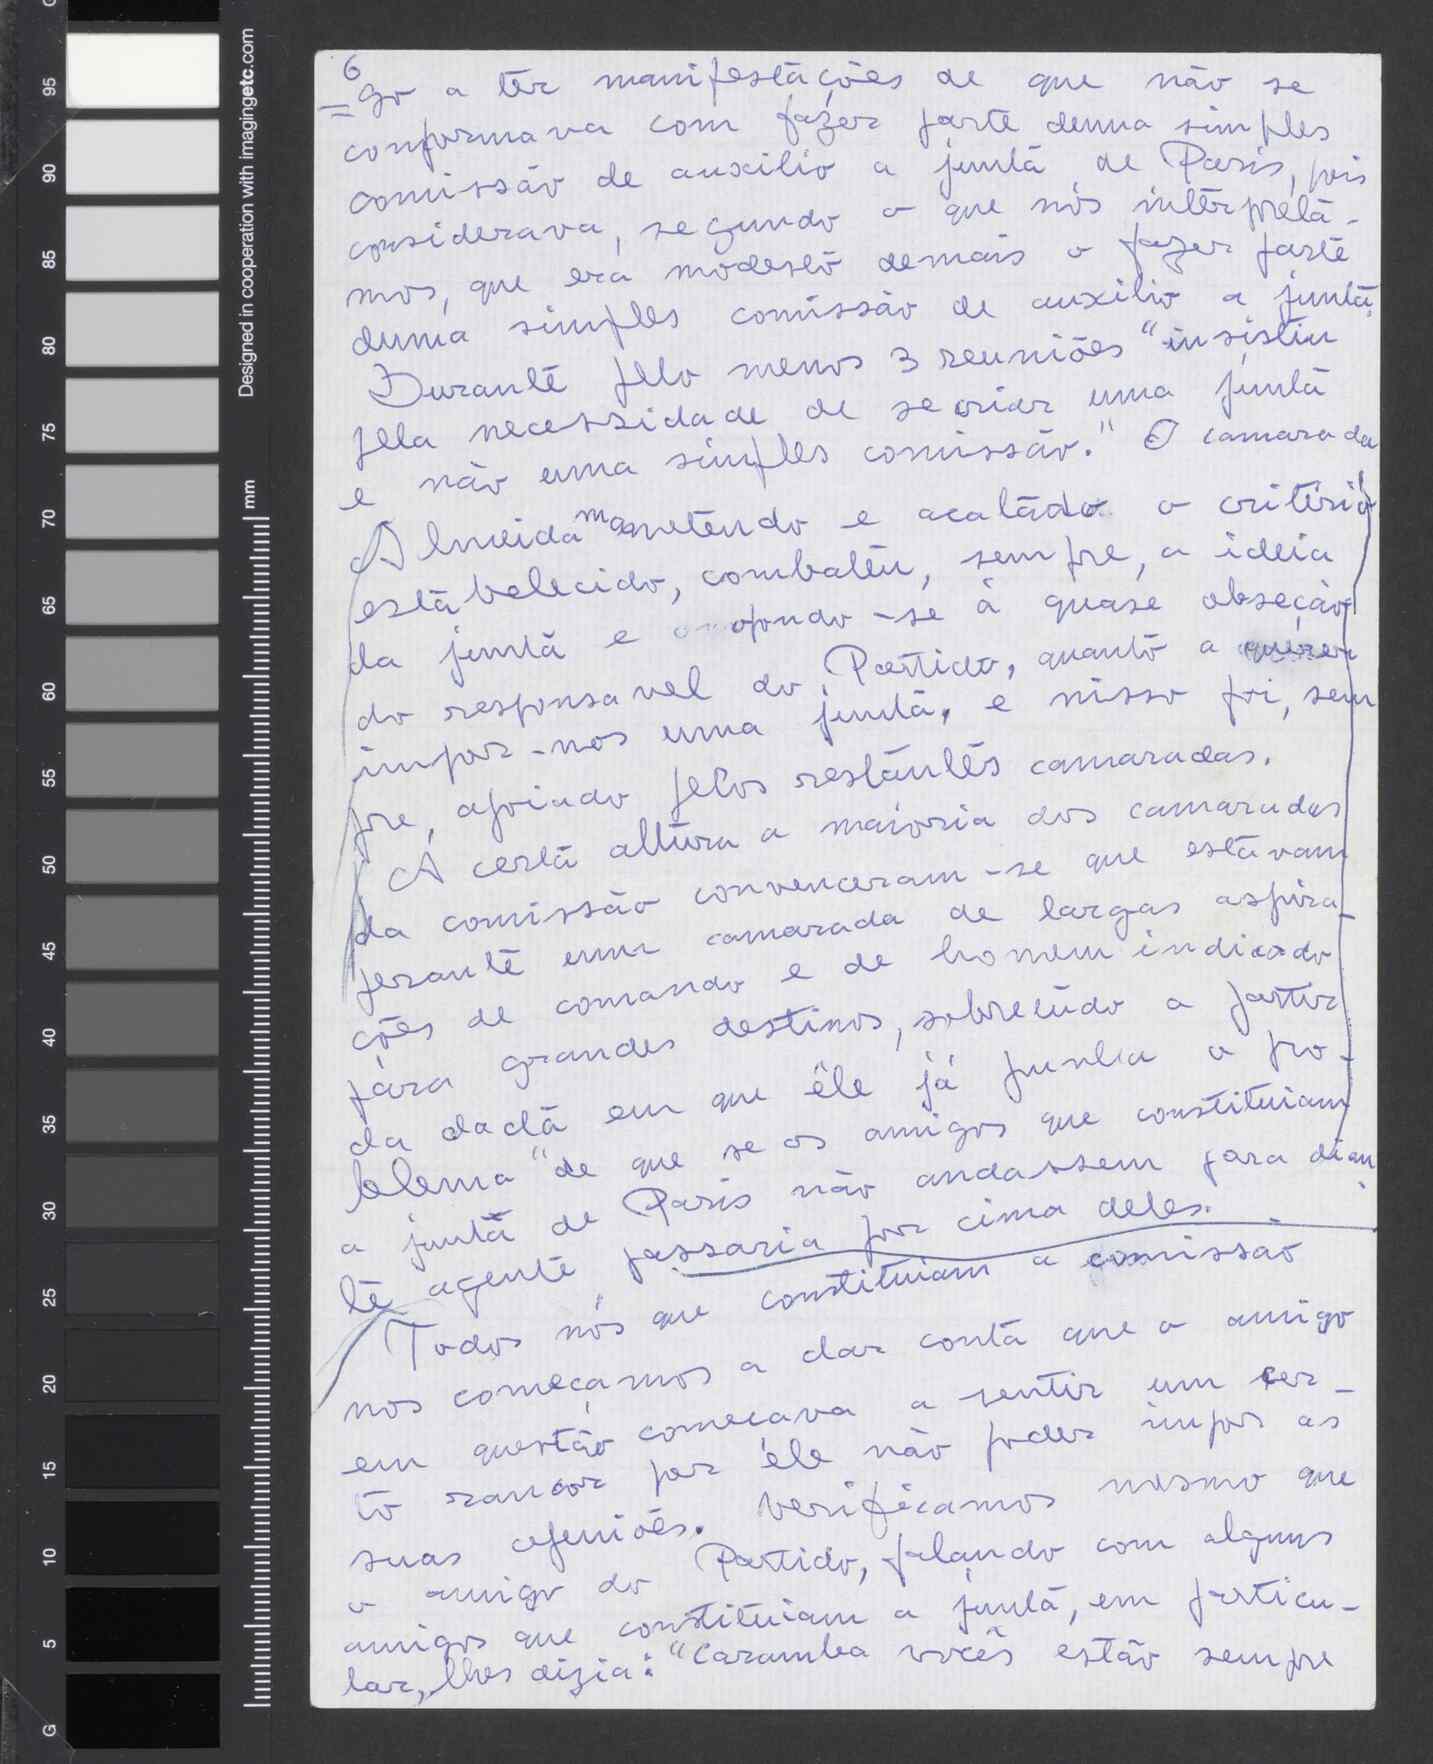 6
go a ter manifestações de que não se
conformava com fazer parte duma simples
comissão de auxilio a junta de Paris, pois
considerava, segundo o que nós interpretá-
mos, que era modesto demais o fazer parte
duma simples comissão de auxilio a junta.
Durante pelo menos 3 reuniões "insistiu
pela necessidade de se criar uma junta
e não uma simples comissão." O camarada
Almeida mantendo e acatado o critério
estabelecido, combateu, sempre, a ideia
da junta e opondo-se à quase obseção
do responsavel do Partido, quanto a querer
impor-nos uma junta, e nisso foi, sem
pre, apoiado pelos restantes camaradas.
A certa altura a maioria dos camaradas
da comissão convenceram-se que estavam
perante um camarada de largas aspira-
ções de comando e de homem indicado
para grandes destinos, sobretudo a partir
da data em que êle já punha o pro-
blema "de que se os amigos que constituiam
a junta de Paris não andassem para dian
te agente passaria por cima deles.
Todos nós que constituiam a comissão
nos começamos a dar conta que o amigo
em questão começava a sentir um cer-
to rancor por êle não poder impor as
suas openiões. Verificamos mesmo que
o amigo do Partido, falando com alguns
amigos que constituiam a junta, em particu-
lar, lhes dizia: "Caramba vocês estão sempre
Designed in cooperation with imagingetc.com
mm
95
90
85
80
75
70
65
60
55
50
45
40
35
30
25
20
15
10
5
G